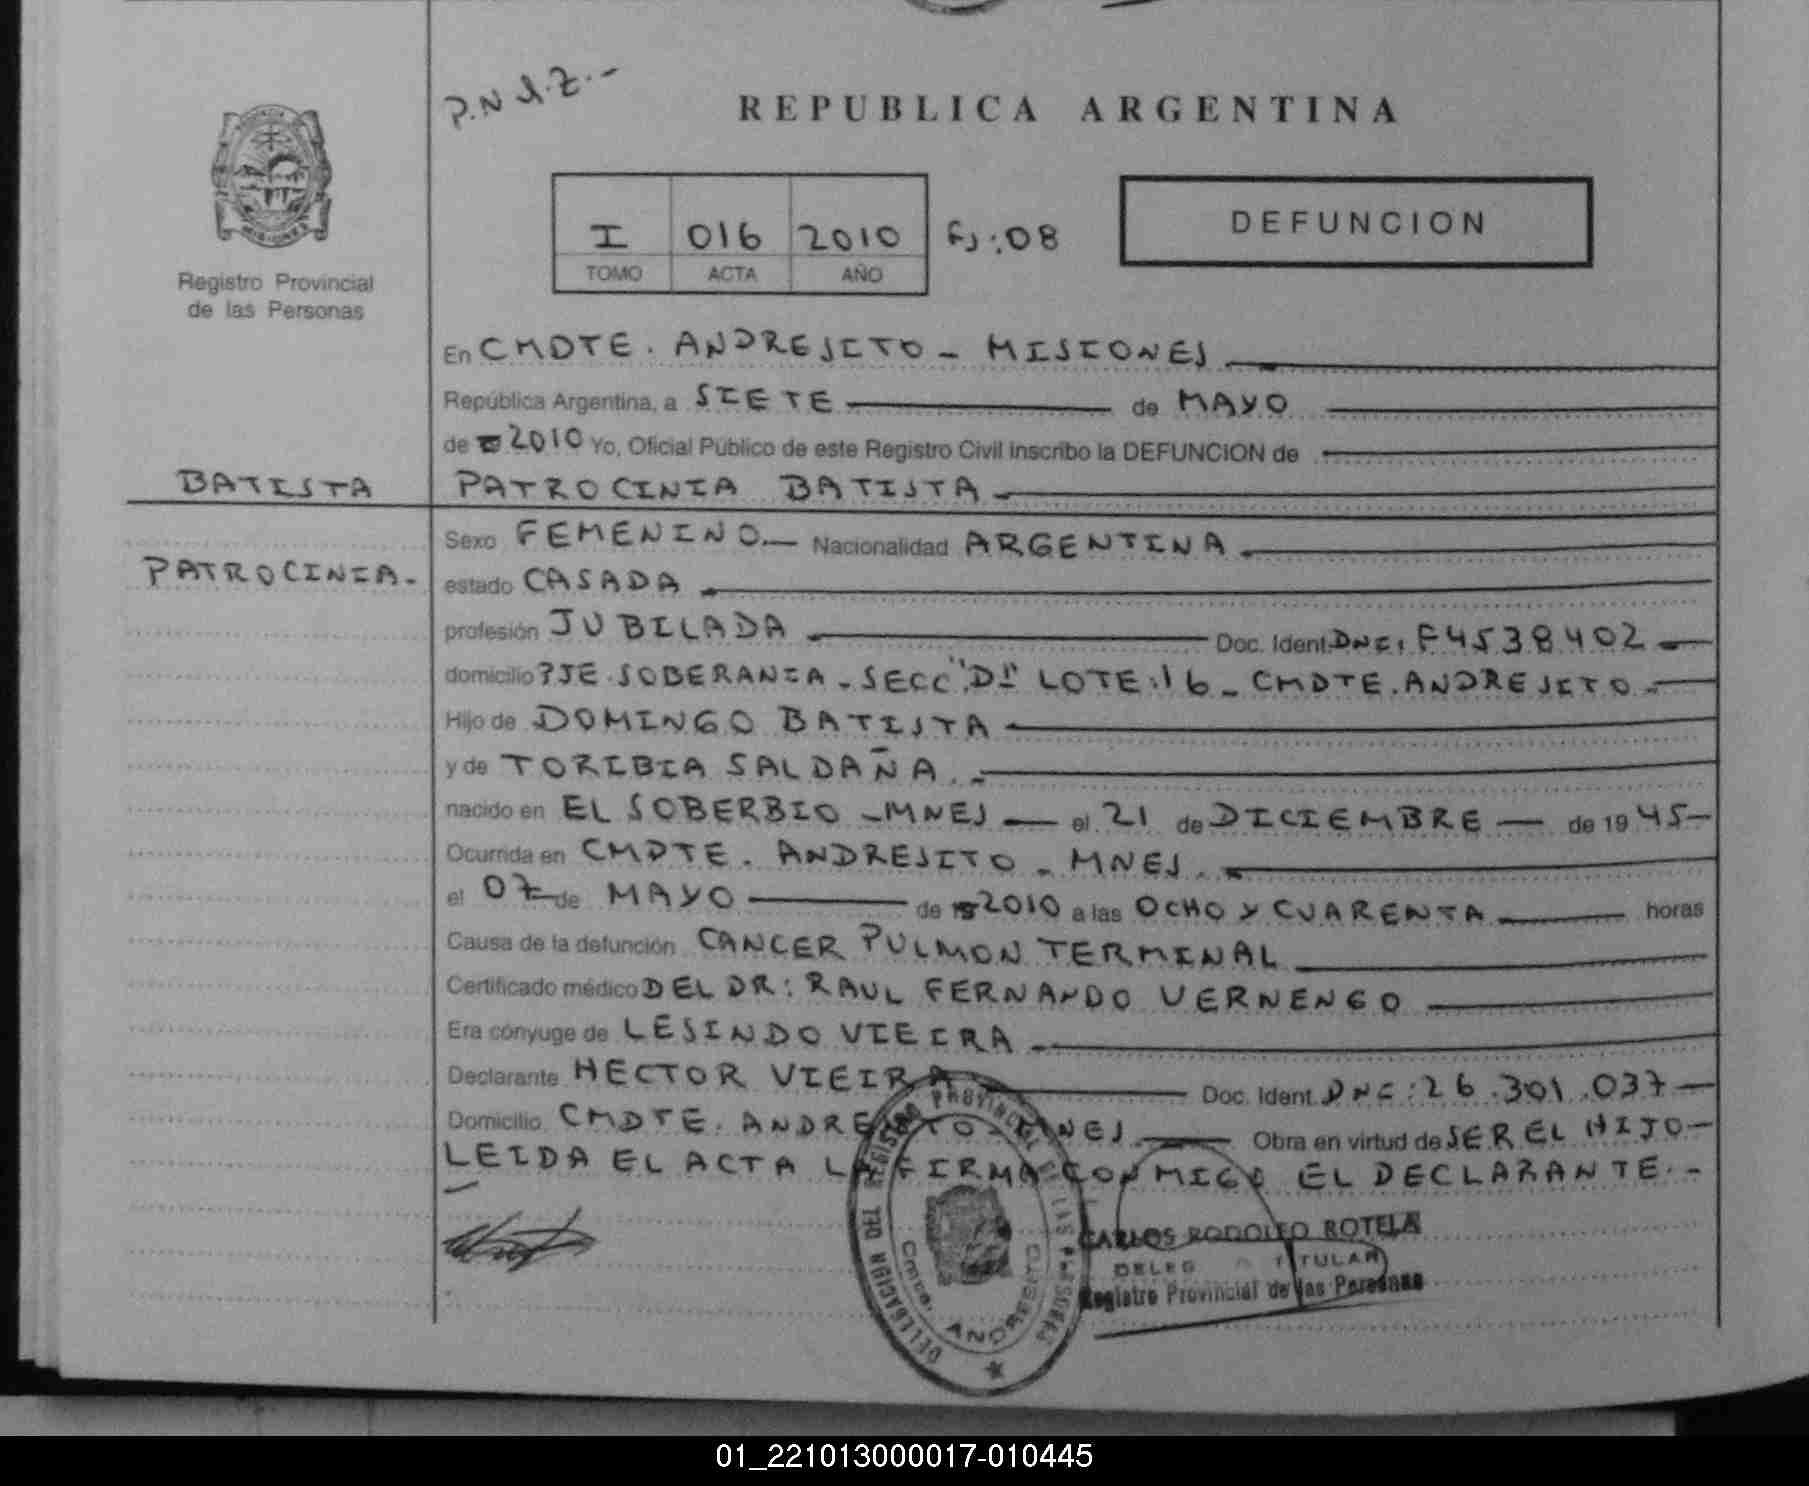 P.N.A.Z.-
REPUBLICA ARGENTINA
I 016 2010 FJ:08
TOMO ACTA AÑO
DEFUNCION
Registro Provincial
de las Personas
En CMDTE. ANDRESITO - MISIONES
República Argentina, a SIETE de MAYO
de 2010 Yo, Oficial Público de este Registro Civil inscribo la DEFUNCION de
BATISTA
PATROCINIA BATISTA
Sexo FEMENINO.- Nacionalidad ARGENTINA
PATROCINIA.
estado CASADA
profesión JUBILADA Doc. Ident. DNI: F4538402
domicilio PJE. SOBERANIA - SECC "D" LOTE:16 - CMDTE. ANDRESITO.-
Hijo de DOMINGO BATISTA
y de TORIBIA SALDAÑA.-
nacido en EL SOBERBIO - MNES el 21 de DICIEMBRE de 1945
Ocurrida en CMDTE. ANDRESITO - MNES.
el 07 de MAYO de 2010 a las OCHO Y CUARENTA horas
Causa de la defunción CANCER PULMON TERMINAL
Certificado médico DEL DR: RAUL FERNANDO VERNENGO
Era cónyuge de LESINDO VIEIRA
Declarante HECTOR VIEIRA Doc. Ident. DNI: 26.301.037
Domicilio CMDTE. ANDRESITO - MNES Obra en virtud de SER EL HIJO-
LEIDA EL ACTA LA FIRMA CONMIGO EL DECLARANTE.-
DELEGACION DEL REGISTRO PROVINCIAL DE LAS PERSONAS
Cmte. ANDRESITO
CARLOS RODOLFO ROTELA
TITULAR
Registro Provincial de las Personas
01_221013000017-010445